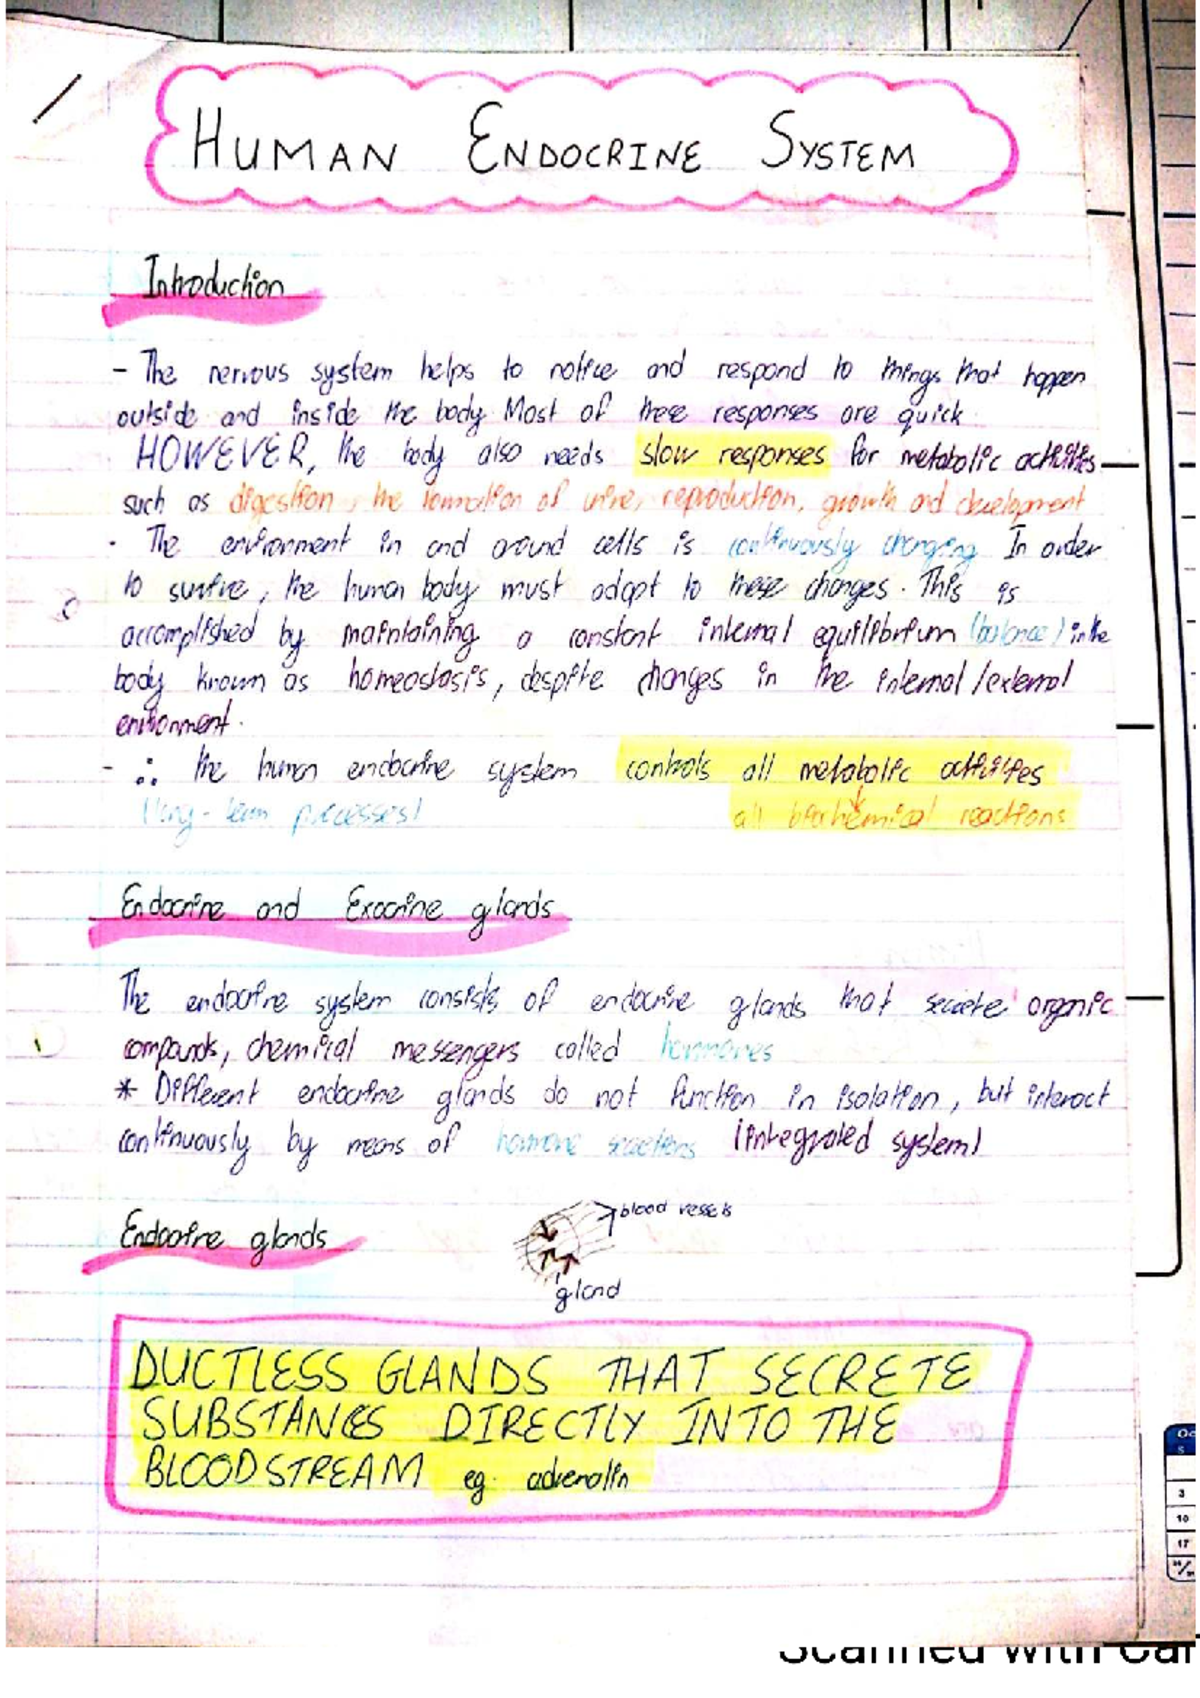 HUMAN ENDOCRINE SYSTEM
Introduction
- The nervous system helps to notice and respond to things that happen
outside and inside the body. Most of these responses are quick.
HOWEVER, the body also needs slow responses for metabolic activities
such as digestion, the formation of urine, reproduction, growth and development
- The environment in and around cells is continuously changing. In order
to survive, the human body must adapt to these changes. This is
accomplished by maintaining a constant internal equilibrium (balance) in the
body known as homeostasis, despite changes in the internal/external
environment.
- ∴ the human endocrine system controls all metabolic activities
(long-term processes) all biochemical reactions
Endocrine and Exocrine glands
The endocrine system consists of endocrine glands that secrete organic
compounds, chemical messengers called hormones
* Different endocrine glands do not function in isolation, but interact
continuously by means of hormone secretions (integrated system)
blood vessels
Endocrine glands
gland
DUCTLESS GLANDS THAT SECRETE
SUBSTANCES DIRECTLY INTO THE
BLOODSTREAM eg. adrenalin
3
10
17
Scanned with